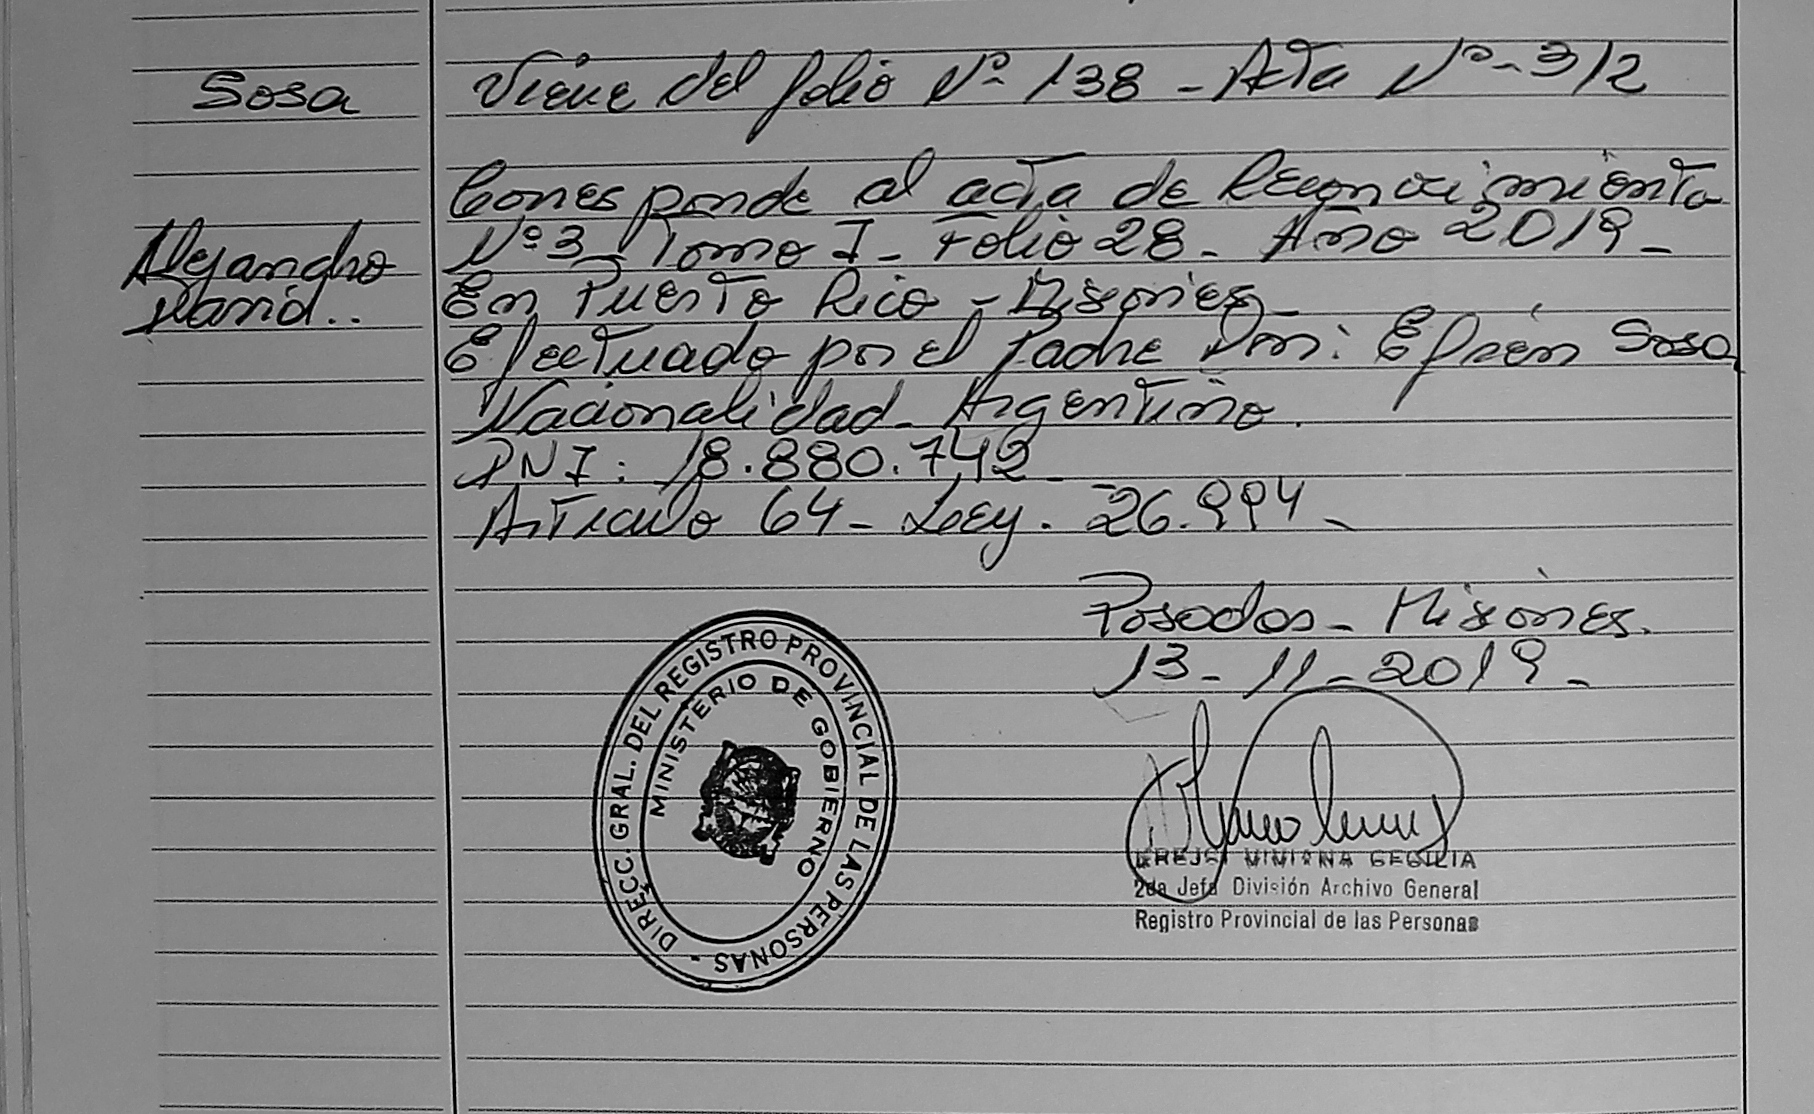 Sosa
Viene del folio Nº 138 - Acta Nº - 312
Corresponde al acta de Reconocimiento
Nº 3 - Tomo I - Folio 28 - Año 2019 -
Alejandro
David..
En Puerto Rico - Misiones -
Efectuado por el Padre Don: Efrén Sosa
Nacionalidad - Argentino.
DNI: 18.880.742 -
Articulo 64 - Ley. 26.994 -
Posadas - Misiones.
13 - 11 - 2019 -
DIRECC. GRAL. DEL REGISTRO PROVINCIAL DE LAS PERSONAS -
MINISTERIO DE GOBIERNO
VIVIANA CECILIA
2da Jefa División Archivo General
Registro Provincial de las Personas